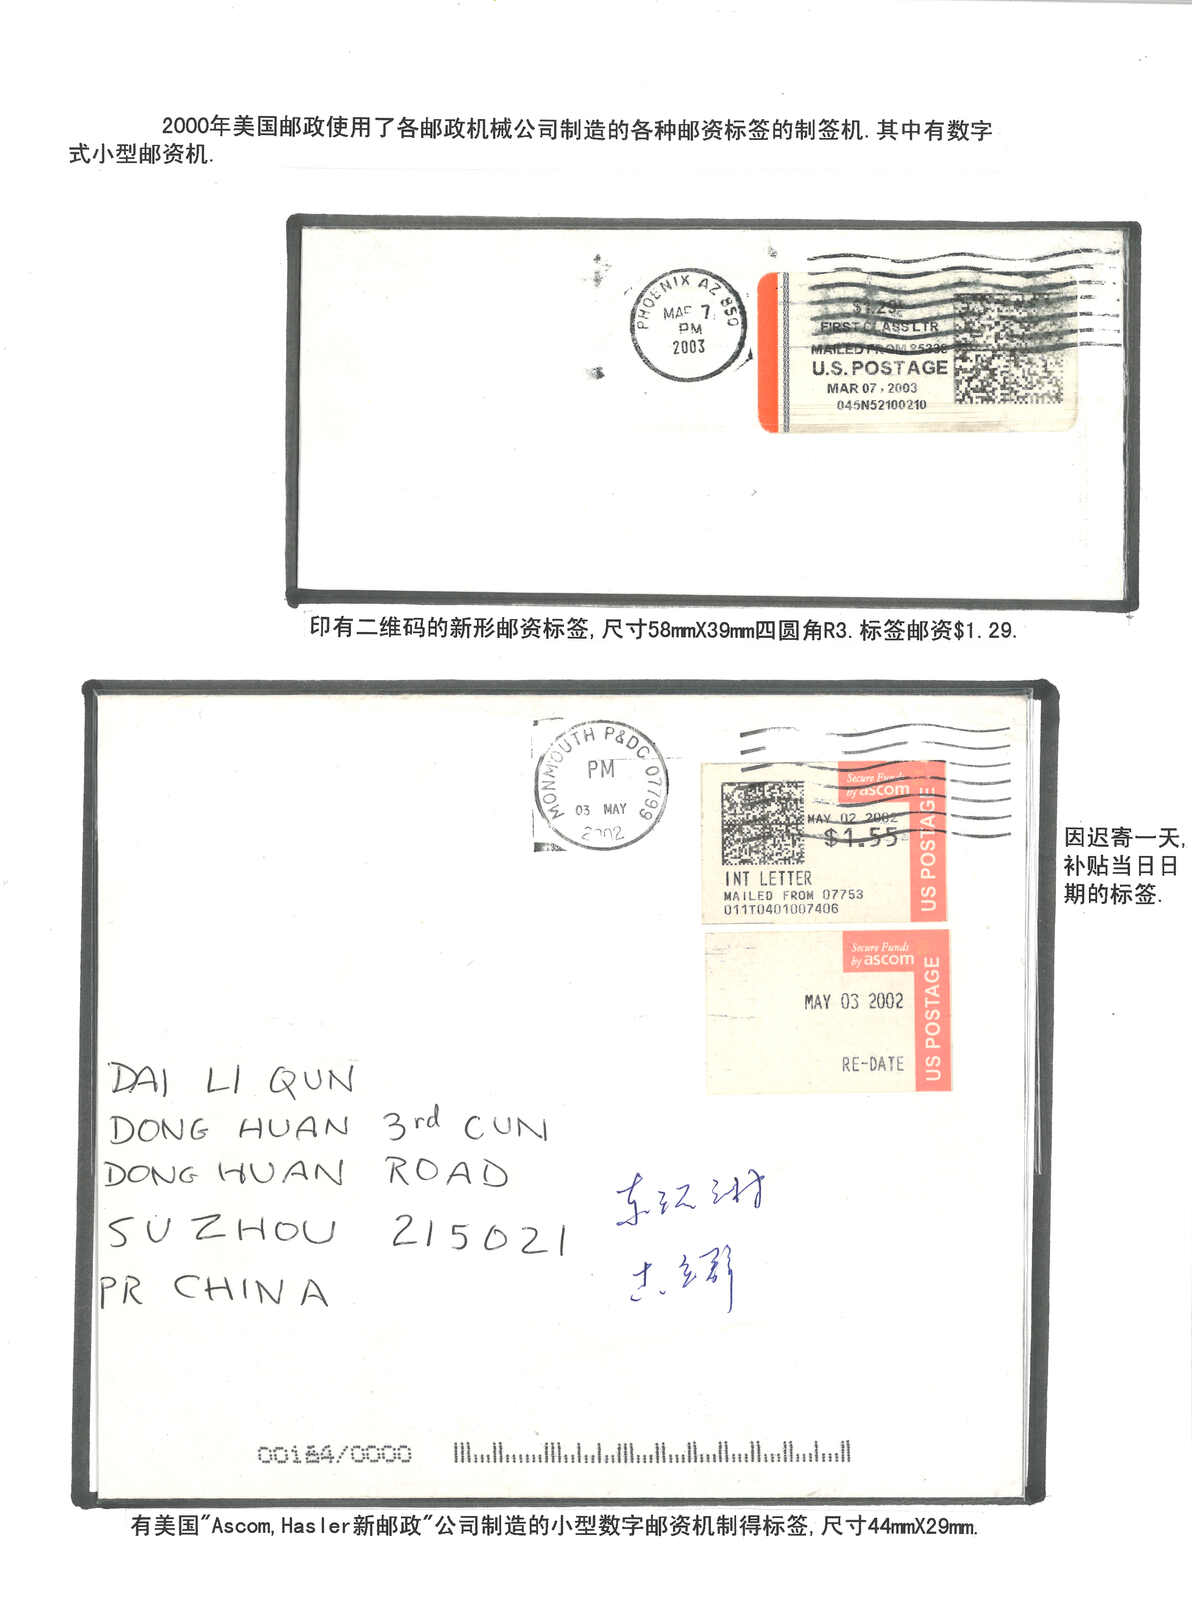 2000年美国邮政使用了各邮政机械公司制造的各种邮资标签的制签机.其中有数字
式小型邮资机.
PHOENIX AZ 850
MAR 7,
PM
2003
$1.29
FIRST CLASS LTR
MAILED FROM 85338
U.S. POSTAGE
MAR 07, 2003
045N52100210
印有二维码的新形邮资标签,尺寸58mmX39mm四圆角R3.标签邮资$1.29.
MONMOUTH P&DC 07799
PM
03 MAY
2002
Secure Funds
by ascom
MAY 02 2002
$1.55
US POSTAGE
INT LETTER
MAILED FROM 07753
011T0401007406
因迟寄一天,
补贴当日日
期的标签.
Secure Funds
by ascom
US POSTAGE
MAY 03 2002
RE-DATE
DAI LI QUN
DONG HUAN 3rd CUN
DONG HUAN ROAD
SUZHOU 215021
PR CHINA
00184/0000
有美国"Ascom,Hasler新邮政"公司制造的小型数字邮资机制得标签,尺寸44mmX29mm.